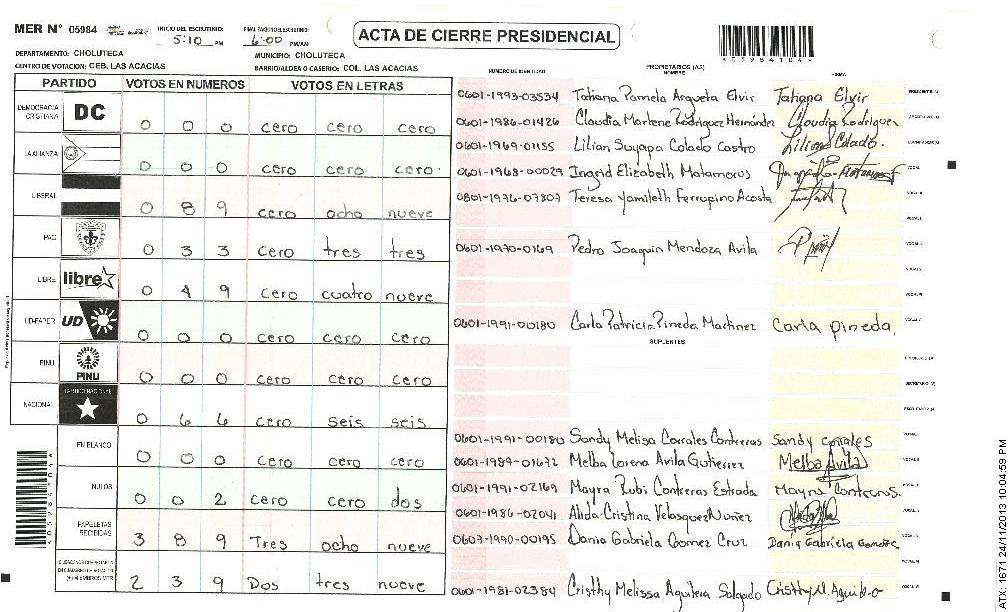 MER N° 05984
INICIO DEL ESCRUTINIO: 5:10 PM
FINAL 6:00 PM/AM
ACTA DE CIERRE PRESIDENCIAL
DEPARTAMENTO: CHOLUTECA
MUNICIPIO: CHOLUTECA
CENTRO DE VOTACION: CEB. LAS ACACIAS
BARRIO/ALDEA O CASERIO: COL. LAS ACACIAS
PARTIDO VOTOS EN NUMEROS VOTOS EN LETRAS
DEMOCRACIA CRISTIANA DC 0 0 0 cero cero cero
LA ALIANZA 0 0 0 cero cero cero
LIBERAL 0 8 9 cero ocho nueve
PAC 0 3 3 cero tres tres
LIBRE libre 0 4 9 cero cuatro nueve
UD-FAPER UD 0 0 0 cero cero cero
PINU PINU 0 0 0 cero cero cero
NACIONAL PARTIDO NACIONAL 0 6 6 cero seis seis
EN BLANCO 0 0 0 cero cero cero
NULOS 0 0 2 cero cero dos
PAPELETAS RECIBIDAS 3 8 9 Tres ocho nueve
2 3 9 Dos tres nueve
NUMERO DE IDENTIDAD PROPIETARIOS (AS) NOMBRE FIRMA
0601-1993-03534 Tatiana Pamela Argueta Elvir Tatiana Elvir
0601-1986-01426 Claudia Marlene Rodriguez Hernández Claudia Rodriguez
0601-1969-01155 Lilian Suyapa Colado Castro Lilian Colado.
0601-1968-00029 Ingrid Elizabeth Matamoros
0801-1976-07807 Teresa Yamileth Ferrupino Acosta
0601-1970-0169 Pedro Joaquin Mendoza Avila
0601-1991-00180 Carla Patricia Pineda Martinez Carla pineda.
SUPLENTES
0601-1991-00180 Sandy Melisa Corrales Contreras Sandy corrales
0601-1989-01672 Melba Lorena Avila Gutierrez Melba Avila
0601-1991-02169 Mayra Rubi Contreras Estrada Mayra Contreras.
0601-1986-02041 Alida Cristina Velasquez Nuñez
0603-1990-00195 Dania Gabriela Gomez Cruz Dania Gabriela Gomez C
0601-1981-02384 Cristhy Melissa Aguilera Salgado Cristhy M. Aguilera
CATX: 1671 24/11/2013 10:04:59 PM